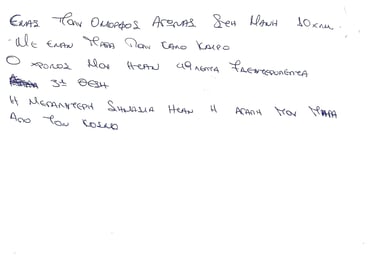 Ενας Παν Ομορφος Αγωνας Στη Μανη 10 χλμ.
Με Εναν Παρα Πολυ Καλο Καιρο
Ο Χρονος Μου Ηταν 49 Λεπτα 7 Δευτερολεπτα
3η Θεση
Η Μεγαλυτερη Σημασια Ηταν Η Αγαπη Που Πηρα
Απο Τον Κοσμο